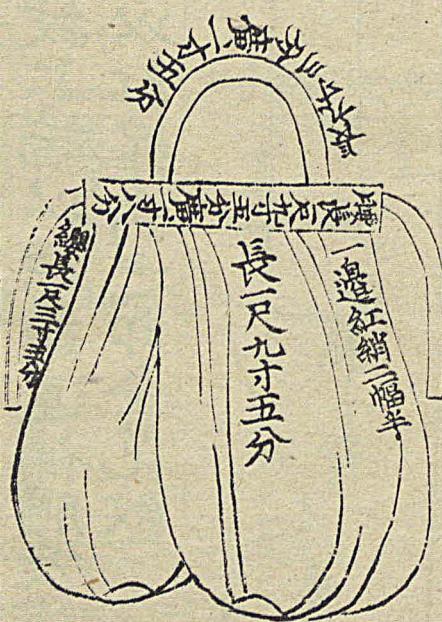 廣一寸五分
腰長一尺九寸五分廣一寸八分
一邊紅綃二幅半
長一尺九寸五分
纓長一尺三寸五分